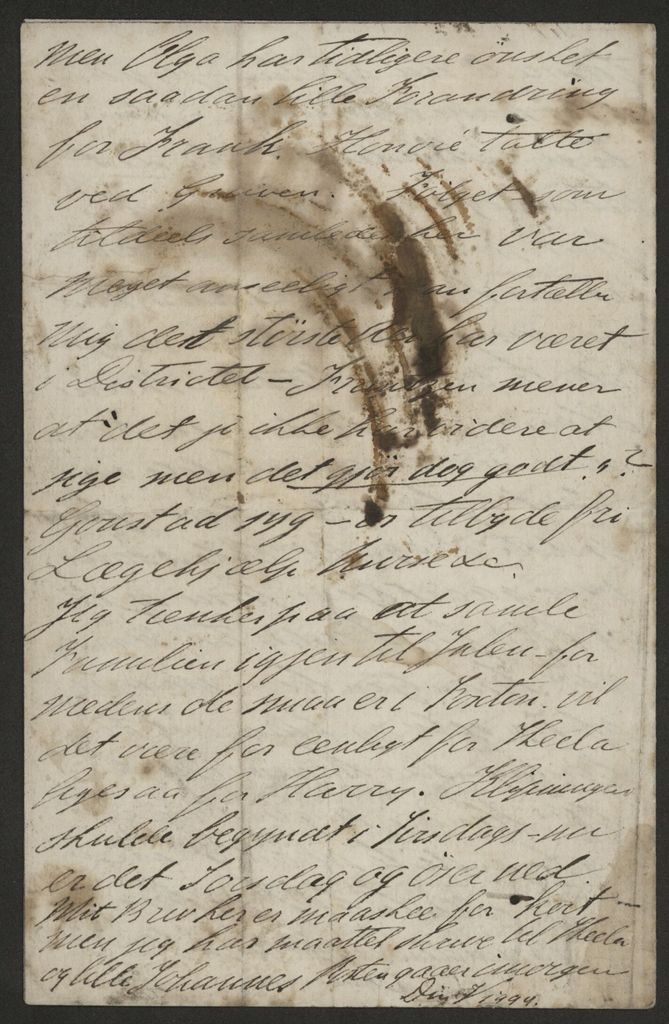 men Olga har tidligere önsket
en saadan lille Forandring
for Frank. Honoré talte
ved Graven. Fölget som
tildeels samledes her var
meget anseeligt fortæller
mig det störste der har været
i Districtet – mener
at det jo ikke har videre at
sige men det gjör dog godt."?
syg – er tilbyde fri
Lægehjælp
Jeg tænker paa at samle
Familien igjen til Julen – for
medens de smaa er i Foxton. vil
det være for eensligt for Thecla
ligesaa for Harry. Klipningen
skulde begyndt i Tirsdags – nu
er det Torsdag og öser ned.
Mit Brev her er maaskee for kort –
men jeg har maattet skrive til Thecla
og lille Johannes Posten gaaer imorgen
Din